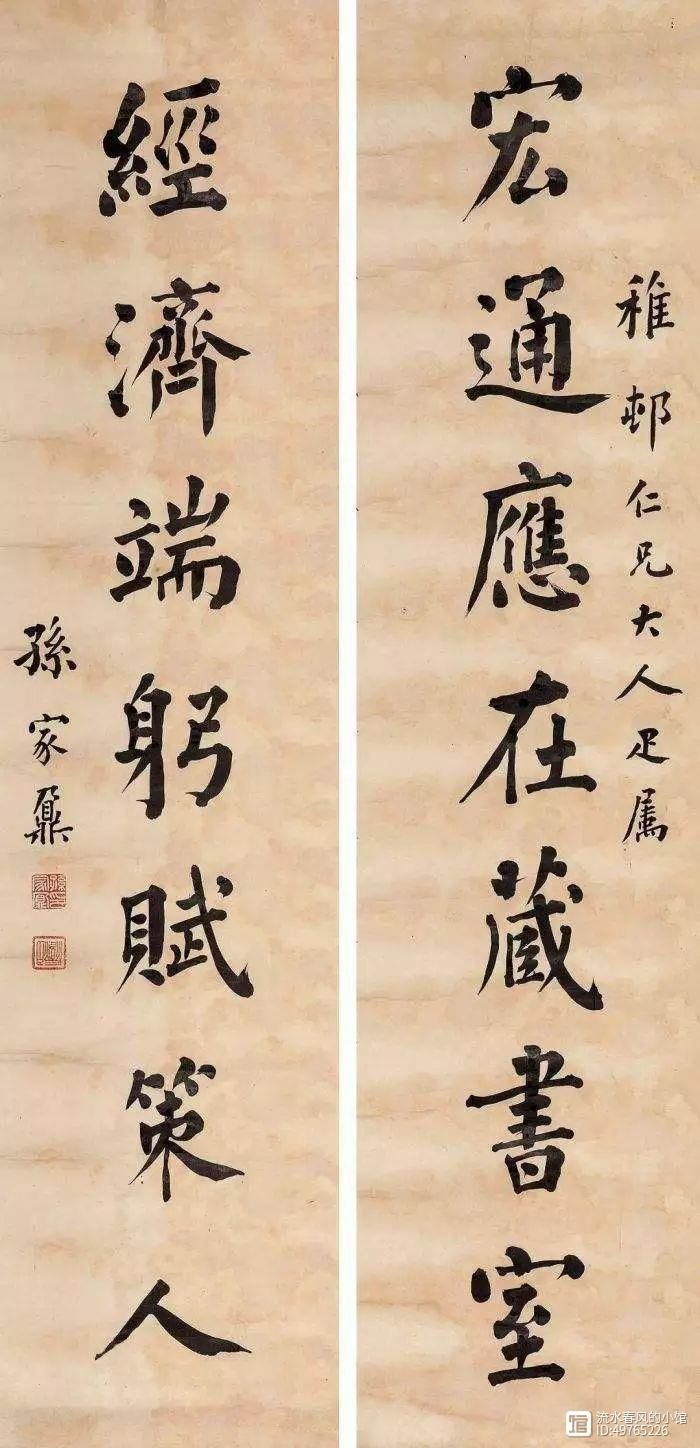 稚邨仁兄大人疋属
宏通應在藏書室
經濟端躬賦策人
孫家鼐
流水春风的小馆
ID:49765226